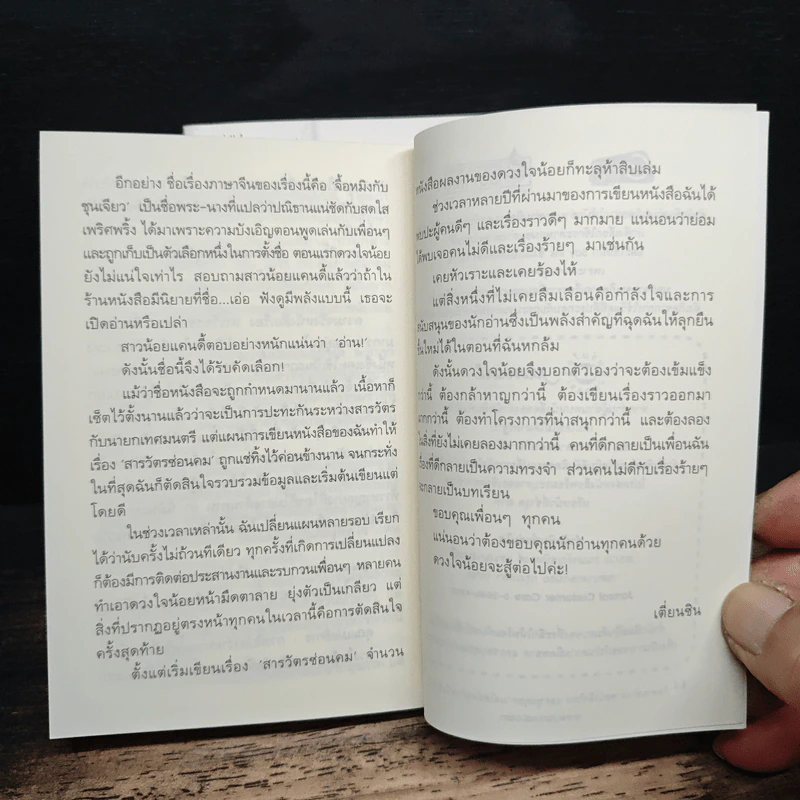 อีกอย่าง ชื่อเรื่องภาษาจีนของเรื่องนี้คือ ‘จื้อหมิงกับ
ชุนเจียว’ เป็นชื่อพระ-นางที่แปลว่าปณิธานแน่ชัดกับสดใส
เพริศพริ้ง ได้มาเพราะความบังเอิญตอนพูดเล่นกับเพื่อนๆ
และถูกเก็บเป็นตัวเลือกหนึ่งในการตั้งชื่อ ตอนแรกดวงใจน้อย
ยังไม่แน่ใจเท่าไร สอบถามสาวน้อยแคนดี้แล้วว่าถ้าใน
ร้านหนังสือมีนิยายที่ชื่อ...เอ่อ ฟังดูมีพลังแบบนี้ เธอจะ
เปิดอ่านหรือเปล่า
สาวน้อยแคนดี้ตอบอย่างหนักแน่นว่า ‘อ่าน!’
ดังนั้นชื่อนี้จึงได้รับคัดเลือก!
แม้ว่าชื่อหนังสือจะถูกกำหนดมานานแล้ว เนื้อหาก็
เซ็ตไว้ตั้งนานแล้วว่าจะเป็นการปะทะกันระหว่างสารวัตร
กับนายกเทศมนตรี แต่แผนการเขียนหนังสือของฉันทำให้
เรื่อง ‘สารวัตรซ่อนคม’ ถูกแช่ทิ้งไว้ค่อนข้างนาน จนกระทั่ง
ในที่สุดฉันก็ตัดสินใจรวบรวมข้อมูลและเริ่มต้นเขียนแต่
โดยดี
ในช่วงเวลาเหล่านั้น ฉันเปลี่ยนแผนหลายรอบ เรียก
ได้ว่านับครั้งไม่ถ้วนทีเดียว ทุกครั้งที่เกิดการเปลี่ยนแปลง
ก็ต้องมีการติดต่อประสานงานและรบกวนเพื่อนๆ หลายคน
ทำเอาดวงใจน้อยหน้ามืดตาลาย ยุ่งตัวเป็นเกลียว แต่
สิ่งที่ปรากฏอยู่ตรงหน้าทุกคนในเวลานี้คือการตัดสินใจ
ครั้งสุดท้าย
ตั้งแต่เริ่มเขียนเรื่อง ‘สารวัตรซ่อนคม’ จำนวน
หนังสือผลงานของดวงใจน้อยก็ทะลุห้าสิบเล่ม
ช่วงเวลาหลายปีที่ผ่านมาของการเขียนหนังสือฉันได้
พบปะผู้คนดีๆ และเรื่องราวดีๆ มากมาย แน่นอนว่าย่อม
ได้พบเจอคนไม่ดีและเรื่องร้ายๆ มาเช่นกัน
เคยหัวเราะและเคยร้องไห้
แต่สิ่งหนึ่งที่ไม่เคยลืมเลือนคือกำลังใจและการ
สนับสนุนของนักอ่านซึ่งเป็นพลังสำคัญที่ฉุดฉันให้ลุกยืน
ขึ้นใหม่ได้ในตอนที่ฉันหกล้ม
ดังนั้นดวงใจน้อยจึงบอกตัวเองว่าจะต้องเข้มแข็ง
กว่านี้ ต้องกล้าหาญกว่านี้ ต้องเขียนเรื่องราวออกมา
มากกว่านี้ ต้องทำโครงการที่น่าสนุกกว่านี้ และต้องลอง
ในสิ่งที่ยังไม่เคยลองมากกว่านี้ คนที่ดีกลายเป็นเพื่อนฉัน
เรื่องที่ดีกลายเป็นความทรงจำ ส่วนคนไม่ดีกับเรื่องร้ายๆ
จะกลายเป็นบทเรียน
ขอบคุณเพื่อนๆ ทุกคน
แน่นอนว่าต้องขอบคุณนักอ่านทุกคนด้วย
ดวงใจน้อยจะสู้ต่อไปค่ะ!
เตี่ยนซิน